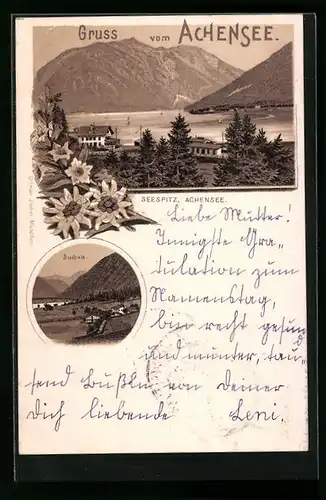 Gruss vom ACHENSEE.
SEESPITZ, ACHENSEE.
Buchau.
Liebe Mutter!
Innigste Gra„
tulation zum
Namenstag,
bin recht gesund
und munter, tau„
send Bußln von Deiner
Dich liebende Leni.